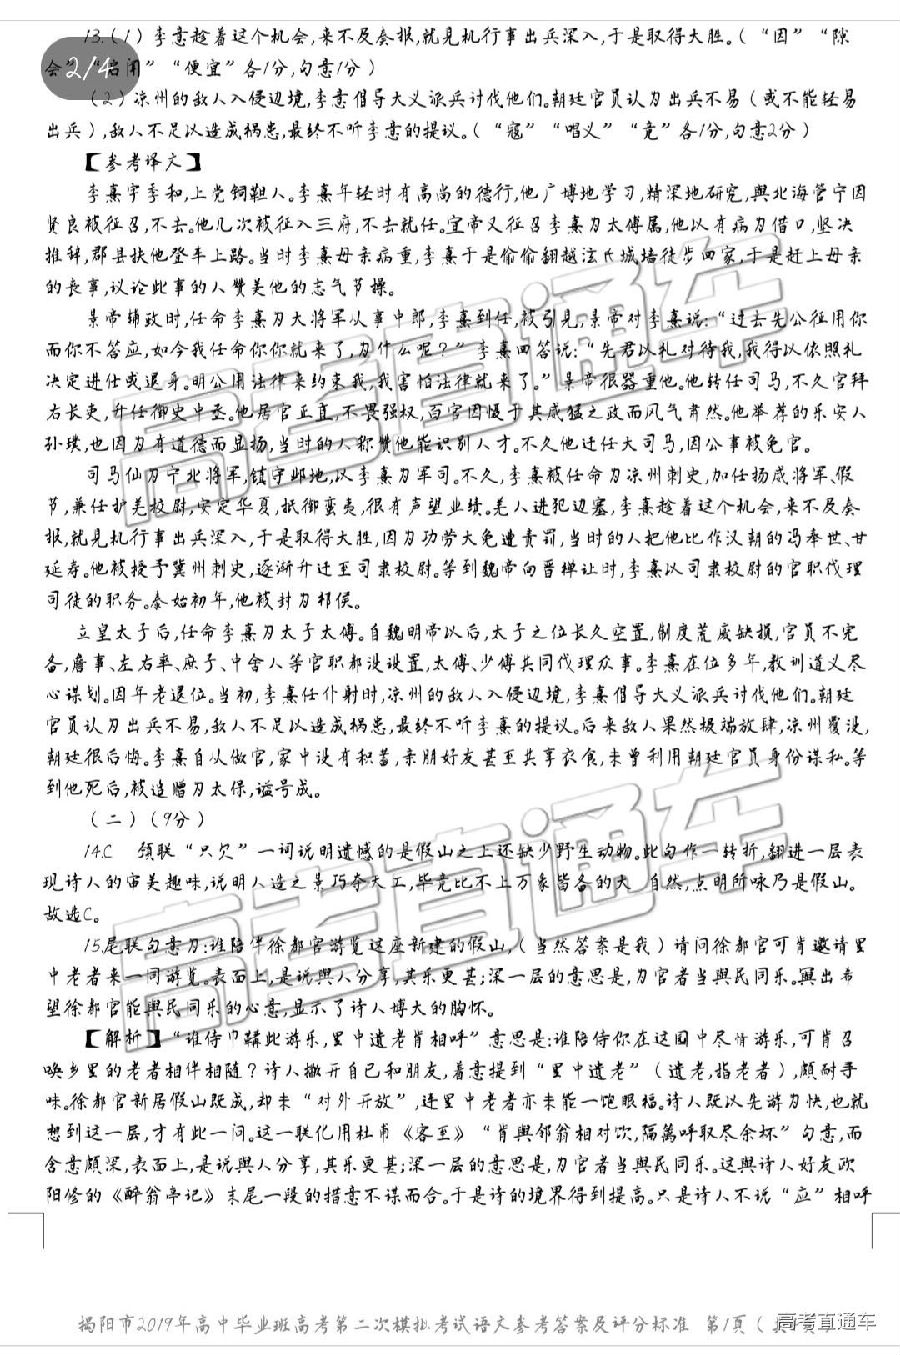 13.(1)李憙趁着这个机会,来不及会报,就见机行事出兵深入,于是取得大胜。(“因”“隙
会”“启闭”“便宜”各1分,句意1分)
2/4
(2)凉州的敌人入侵边境,李憙倡导大义派兵讨伐他们。朝廷官员认为出兵不易(或不能轻易
出兵),敌人不足以造成祸患,最终不听李憙的提议。(“寇”“唱义”“竟”各1分,句意2分)
【参考译文】
李熹字季和,上党铜鞮人。李熹年轻时有高尚的德行,他广博地学习,精深地研究,與北海管宁因
贤良被征召,不去。他几次被征入三府,不去就任。宣帝又征召李熹为太傅属,他以有病为借口,坚决
推辞,郡县扶他登车上路。当时李熹母亲病重,李熹于是偷偷翻越泫氏城墙徒步回家,于是赶上母亲
的丧事,议论此事的人赞美他的志气节操。
景帝辅政时,任命李熹为大将军从事中郎,李熹到任,被引见,景帝对李熹说:“过去先公征用你
而你不答应,如今我任命你你就来了,为什么呢?”李熹回答说:“先君以礼对待我,我得以依照礼
决定进仕或退身。明公用法律来约束我,我害怕法律就来了。”景帝很器重他。他转任司马,不久官拜
右长吏,升任御史中丞。他居官正直,不畏强权,百官因慑于其威猛之政而风气肃然。他举荐的乐安人
孙璞,也因为有道德而显扬,当时的人称赞他能识别人才。不久他迁任大司马,因公事被免官。
司马伷为宁北将军,镇守邺地,以李熹为军司。不久,李熹被任命为凉州刺史,加任扬威将军、假
节,兼任护羌校尉,安定华夏,抵御蛮夷,很有声望业绩。羌人进犯边塞,李熹趁着这个机会,来不及会
报,就见机行事出兵深入,于是取得大胜,因为功劳大免遭责罚,当时的人把他比作汉朝的冯奉世、甘
延寿。他被授予冀州刺史,逐渐升迁至司隶校尉。等到魏帝向晋禅让时,李熹以司隶校尉的官职代理
司徒的职务。泰始初年,他被封为祁侯。
立皇太子后,任命李熹为太子太傅。自魏明帝以后,太子之位长久空置,制度荒废缺损,官员不完
备,詹事、左右率、庶子、中舍人等官职都没设置,太傅、少傅共同代理众事。李熹在位多年,教训道义尽
心谋划。因年老退位。当初,李熹任仆射时,凉州的敌人入侵边境,李熹倡导大义派兵讨伐他们。朝廷
官员认为出兵不易,敌人不足以造成祸患,最终不听李熹的提议。后来敌人果然极端放肆,凉州覆没,
朝廷很后悔。李熹自从做官,家中没有积蓄,亲朋好友甚至共享衣食,未曾利用朝廷官员身份谋私。等
到他死后,被追赠为太保,谥号成。
(二)(9分)
14.C 颔联“只欠”一词说明遗憾的是假山之上还缺少野生动物。此句作一转折,翻进一层表
现诗人的审美趣味,说明人造之景巧夺天工,毕竟比不上万象皆备的大自然,点明所咏乃是假山。
故选C。
15.尾联句意为:谁陪伴徐都官游览这座新建的假山,(当然答案是我)请问徐都官可肯邀请里
中老者来一同游览。表面上,是说與人分享,其乐更甚;深一层的意思是,为官者当與民同乐。與出希
望徐都官能與民同乐的心意,显示了诗人博大的胸怀。
【解析】“谁侍巾韝此游乐,里中遗老肯相呼”意思是:谁陪侍你在这园中尽情游乐,可肯召
唤乡里的老者相伴相随?诗人撇开自己和朋友,着意提到“里中遗老”(遗老,指老者),颇耐寻
味。徐都官新居假山既成,却未“对外开放”,连里中老者亦未能一饱眼福。诗人既以先游为快,也就
想到这一层,才有此一问。这一联化用杜甫《客至》“肯與邻翁相对饮,隔篱呼取尽余杯”句意,而
含意颇深,表面上,是说與人分享,其乐更甚;深一层的意思是,为官者当與民同乐。这與诗人好友欧
阳修的《醉翁亭记》末尾一段的措意不谋而合。于是诗的境界得到提高。只是诗人不说“应”相呼
揭阳市2019年高中毕业班高考第二次模拟考试语文参考答案及评分标准 第1页(共
高考直通车
高考直通车
高考直通车